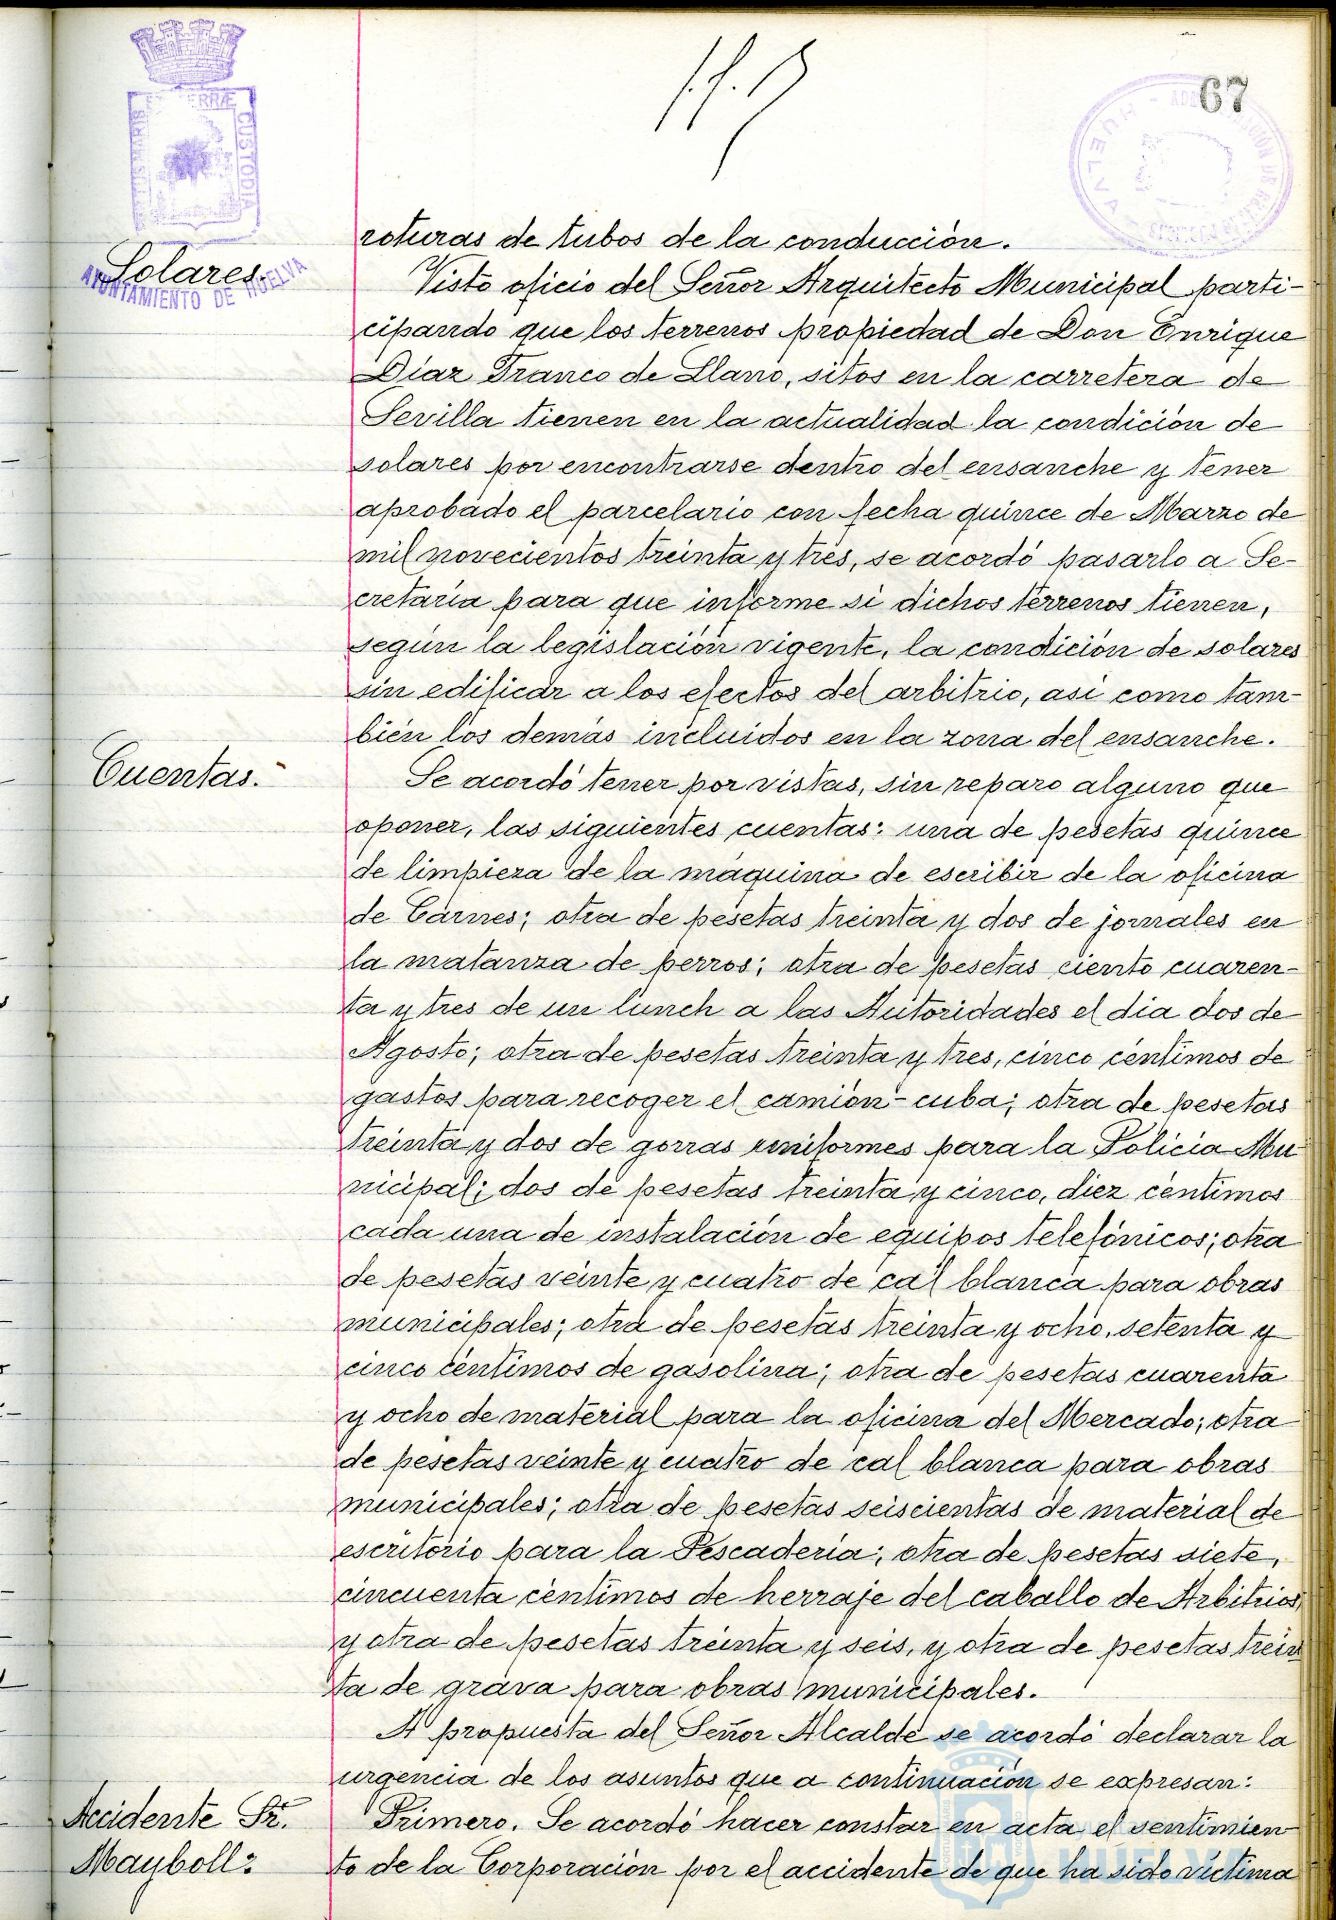 67
PORTUS MARIS ET TERRÆ CUSTODIA
AYUNTAMIENTO DE HUELVA
HUELVA
Solares.
roturas de tubos de la conducción.
Visto oficio del Señor Arquitecto Municipal parti-
cipando que los terrenos propiedad de Don Enrique
Díaz Franco de Llano, sitos en la carretera de
Sevilla tienen en la actualidad la condición de
solares por encontrarse dentro del ensanche y tener
aprobado el parcelario con fecha quince de Marzo de
mil novecientos treinta y tres, se acordó pasarlo a Se-
cretaría para que informe si dichos terrenos tienen,
según la legislación vigente, la condición de solares
sin edificar a los efectos del arbitrio, así como tam-
bién los demás incluidos en la zona del ensanche.
Cuentas.
Se acordó tener por vistas, sin reparo alguno que
oponer, las siguientes cuentas: una de pesetas quince
de limpieza de la máquina de escribir de la oficina
de Carnes; otra de pesetas treinta y dos de jornales en
la matanza de perros; otra de pesetas ciento cuaren-
ta y tres de un lunch a las Autoridades el día dos de
Agosto; otra de pesetas treinta y tres, cinco céntimos de
gastos para recoger el camión-cuba; otra de pesetas
treinta y dos de gorras uniformes para la Policía Mu-
nicipal; dos de pesetas treinta y cinco, diez céntimos
cada una de instalación de equipos telefónicos; otra
de pesetas veinte y cuatro de cal blanca para obras
municipales; otra de pesetas treinta y ocho, setenta y
cinco céntimos de gasolina; otra de pesetas cuarenta
y ocho de material para la oficina del Mercado; otra
de pesetas veinte y cuatro de cal blanca para obras
municipales; otra de pesetas seiscientas de material de
escritorio para la Pescadería; otra de pesetas siete,
cincuenta céntimos de herraje del caballo de Arbitrios,
y otra de pesetas treinta y seis, y otra de pesetas trein
ta de grava para obras municipales.
A propuesta del Señor Alcalde se acordó declarar la
urgencia de los asuntos que a continuación se expresan:
Accidente Sr.
Mayboll:
Primero. Se acordó hacer constar en acta el sentimien
to de la Corporación por el accidente de que ha sido víctima